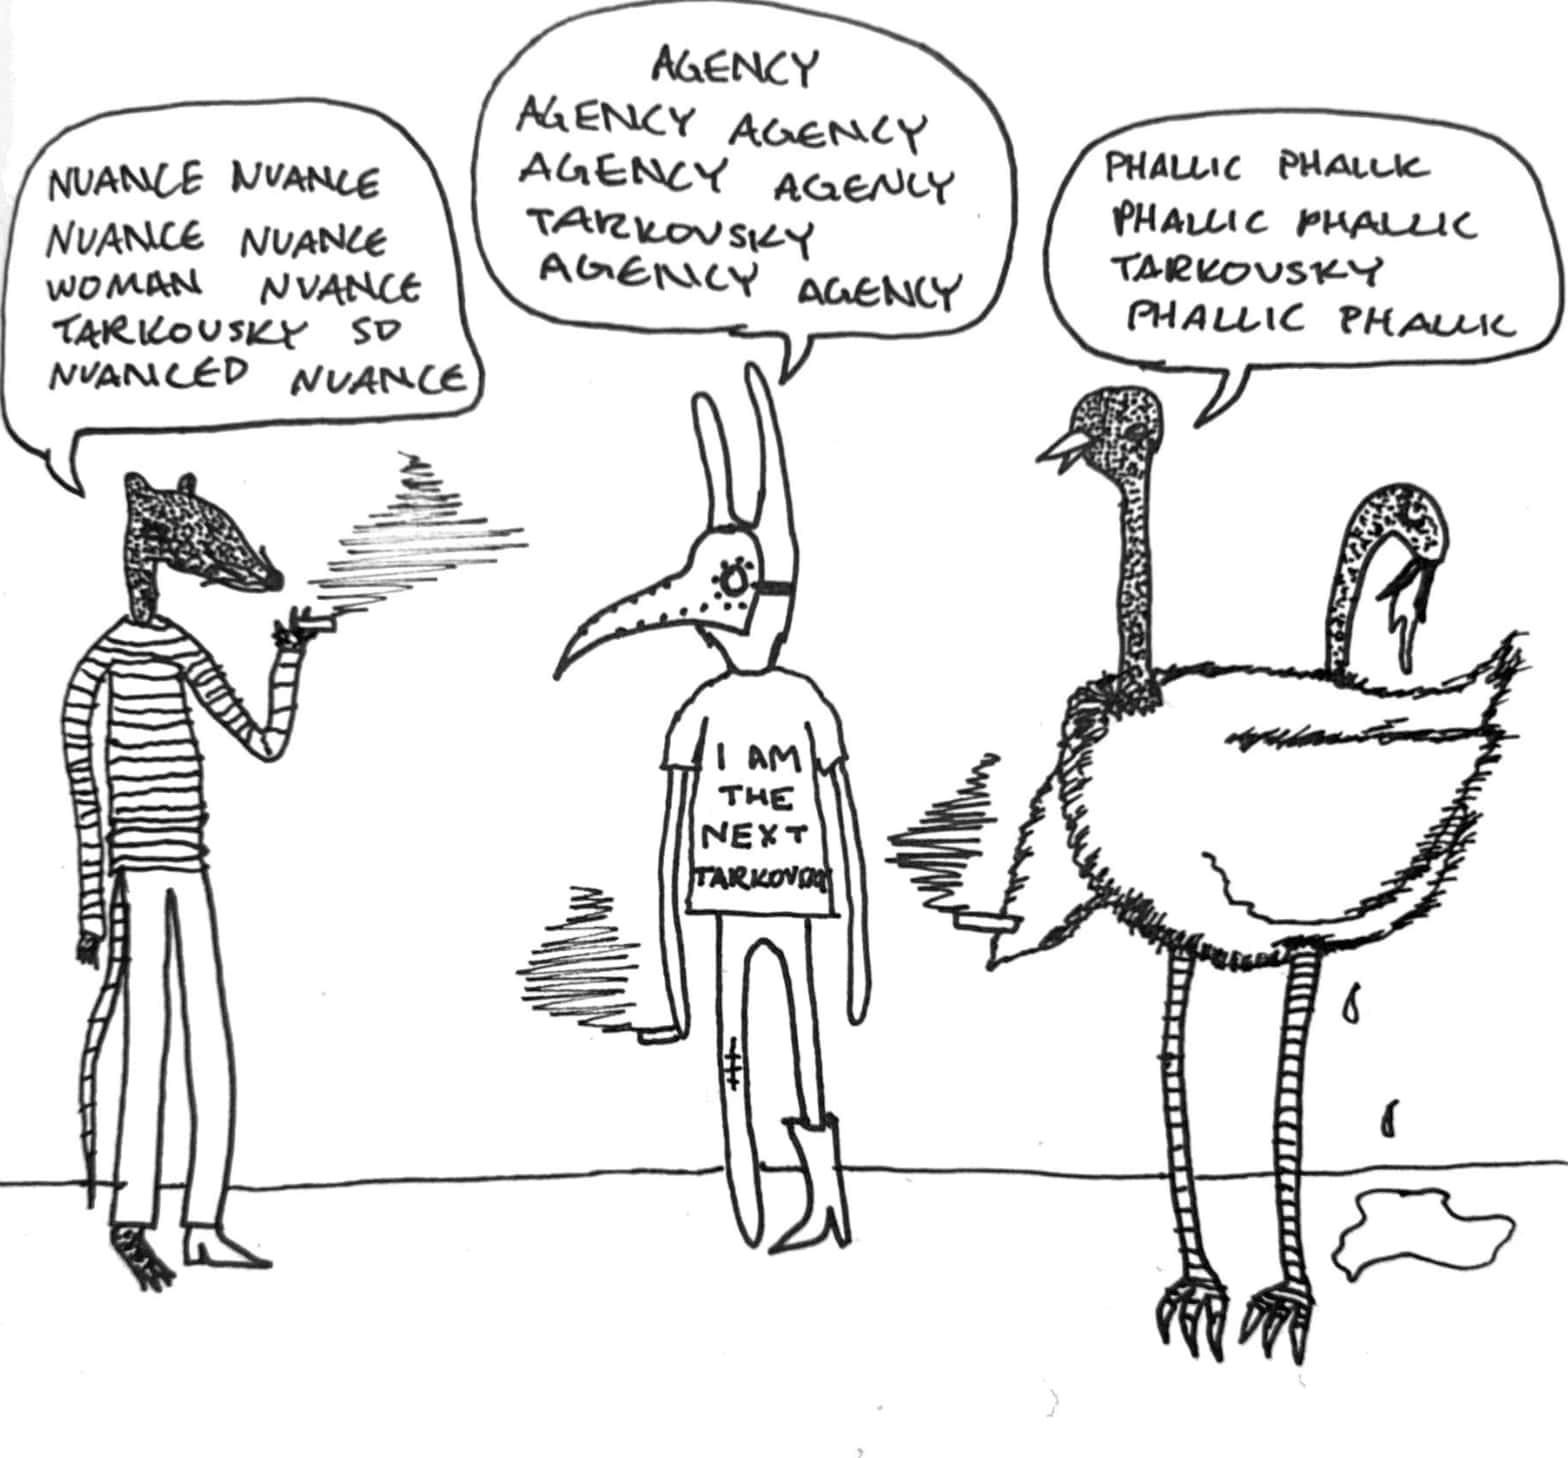 NUANCE NUANCE
NUANCE NUANCE
WOMAN NUANCE
TARKOVSKY SO
NUANCED NUANCE
AGENCY
AGENCY AGENCY
AGENCY AGENCY
TARKOVSKY
AGENCY AGENCY
PHALLIC PHALLIC
PHALLIC PHALLIC
TARKOVSKY
PHALLIC PHALLIC
I AM
THE
NEXT
TARKOVSKY